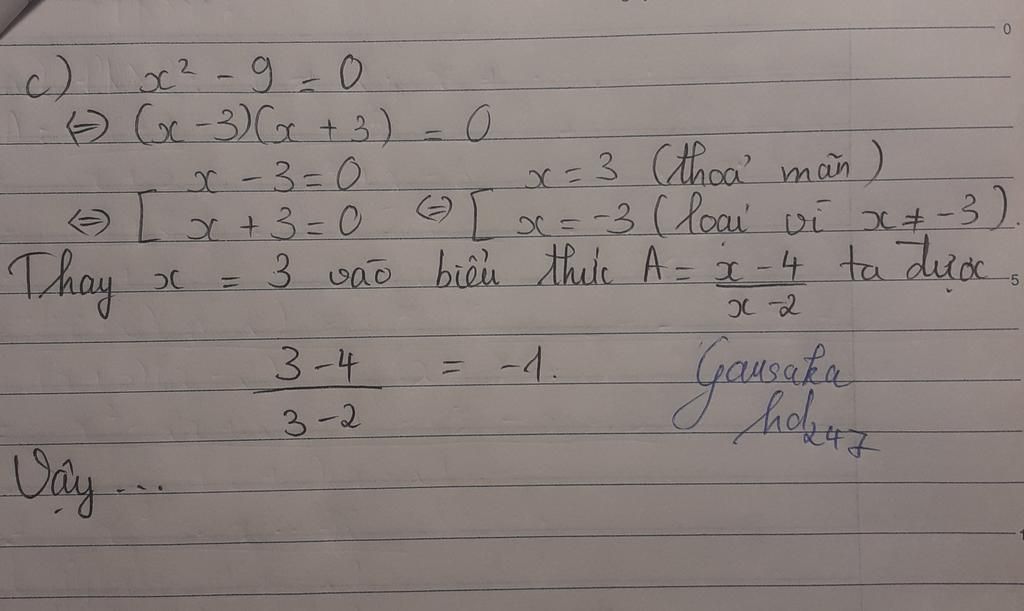 c) x² - 9 = 0
⇔ (x - 3)(x + 3) = 0
x - 3 = 0 x = 3 (thoả mãn)
⇔ [ x + 3 = 0 ⇔ [ x = -3 (loại vì x ≠ -3).
Thay x = 3 vào biểu thức A = \frac{x - 4}{x - 2} ta được
\frac{3 - 4}{3 - 2} = -1.
Gausaka
hd247
Vậy ...